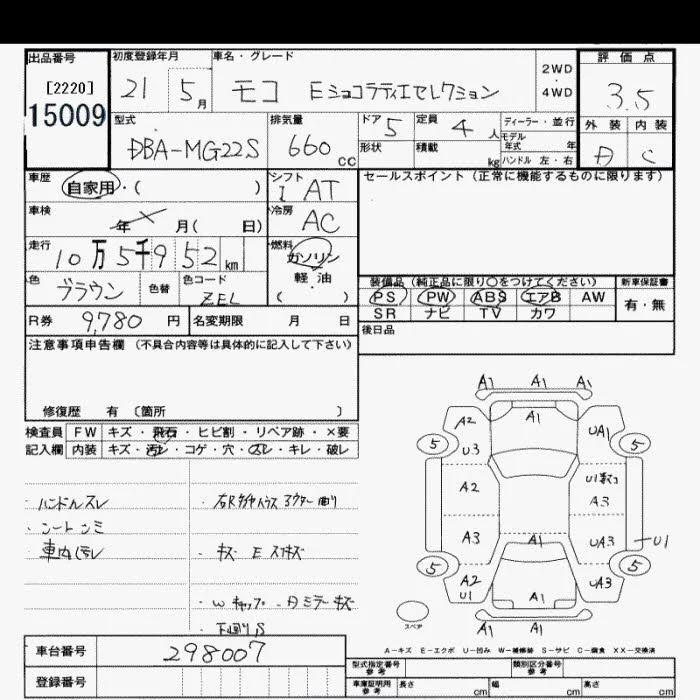 出品番号 初度登録年月 車名・グレード 2WD・4WD 評価点
[2220] 21 5月 モコ Eショコラティエセレクション 3.5
15009 型式 排気量 ドア 5 定員 4人 ディーラー・並行 外装 内装
DBA-MG22S 660 CC 形状 積載 kg モデル年式 年 C
ハンドル 左・右
車歴 自家用・( ) シフト I AT セールスポイント(正常に機能するものに限ります)
車検 年 月( 日) 冷房 AC
走行 10万5千952km 燃料 ガソリン
軽・油
( )
色 ブラウン 色替 色コード ZEL
装備品(純正品に限り○をつけてください) 新車保証書
PS PW ABS エアB AW 有・無
SR ナビ TV カワ
R券 9,780円 名変期限 月 日 後日品
注意事項申告欄(不具合内容等は具体的に記入して下さい)
修復歴 有〔箇所 〕
検査員 FW キズ・飛石・ヒビ割・リペア跡・×要
記入欄 内装 キズ・汚レ・コゲ・穴・スレ・キレ・破レ
・ハンドルスレ
・シートシミ
・車内汚レ
・キズ E
・Wキャップ
・下廻りS
A1 A1 A1
A2 A1 UA1
5 U3 5
A2 A3
A3 UA3 U1
5 5
A2 U1 A1 UA3
A1 A1
スペア
A-キズ E-エクボ U-凹み W-補修跡 S-サビ C-腐食 XX-交換済
車台番号 298007
登録番号
型式指定番号 参考 類別区分番号 参考
車庫証明用 参考 長さ cm 幅 cm 高さ cm